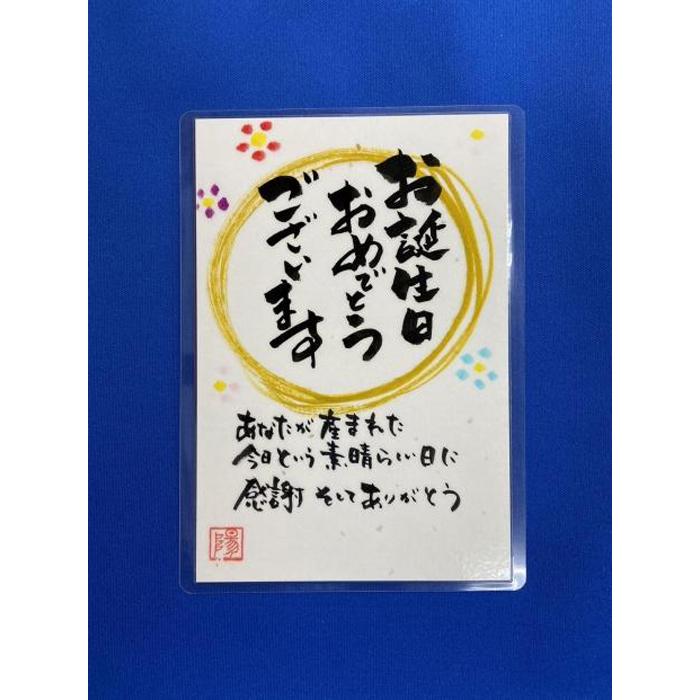 お誕生日
おめでとう
ございます
あなたが産まれた
今日という素晴らしい日に
感謝 そしてありがとう
陽